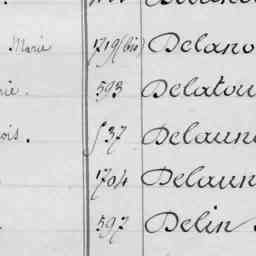 Marie 1719 (bis) Delano
rie. 593 Delatou
ois. 537 Delaun
1704 Delaun
597 Delin